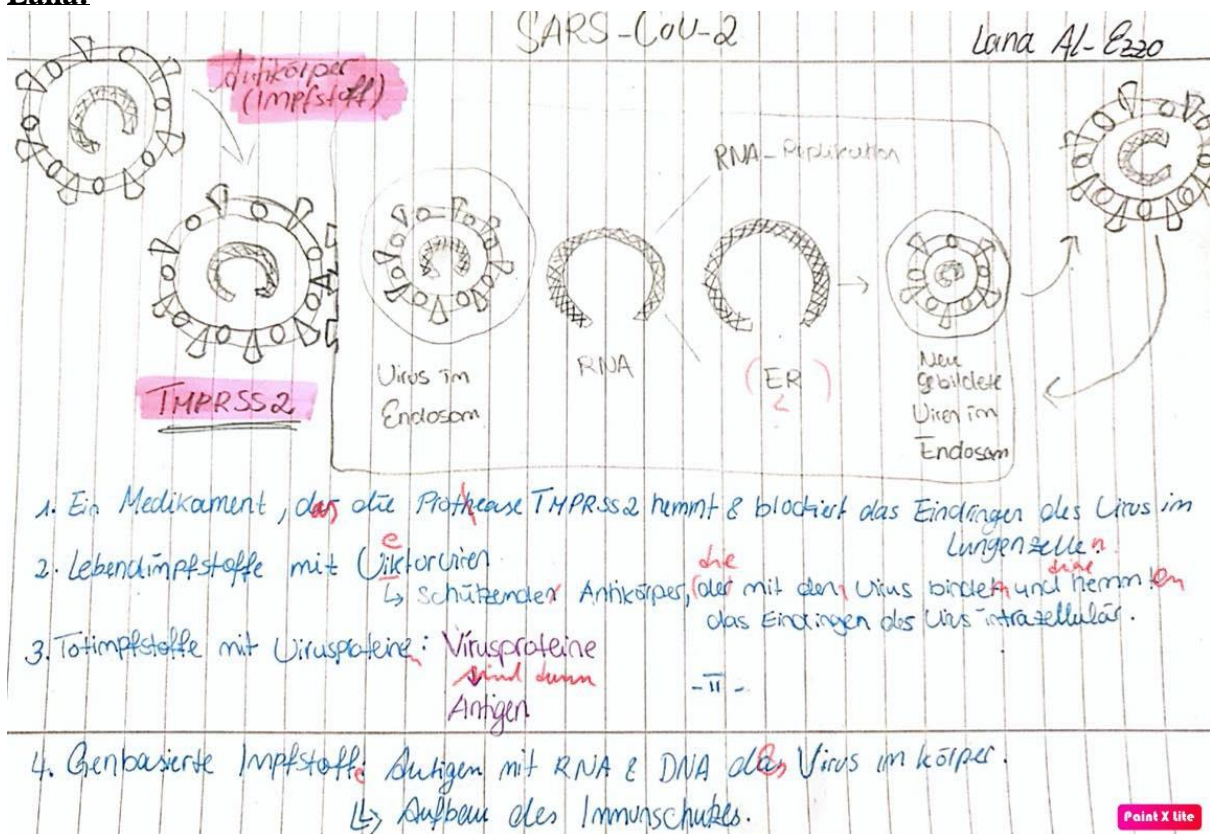 Lana:
SARS-CoV-2
Lana Al-Ezzo
Antikörper
(Impfstoff)
RNA-Replikation
TMPRSS2
Virus im
Endosom
RNA
(ER)
Neu
gebildete
Viren im
Endosom
1. Ein Medikament, das die Prothease TMPRSS2 hemmt & blockiert das Eindringen des Virus im
Lungenzellen
2. Lebendimpfstoffe mit Vektorviren
die
↳ Schützender Antikörper, (der mit den Virus binden und hemmen
das Eindringen des Virus intrazellulär.
3. Totimpfstoffe mit Virusproteine: Virusproteine
sind dann
Antigen
-II-
4. Genbasierte Impfstoffe: Antigen mit RNA & DNA des Virus im Körper.
↳ Aufbau des Immunschutzes.
Paint X Lite